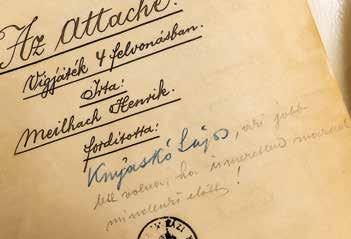 Az attaché.
Vígjáték 4 felvonásban.
Irta:
Meilhach Henrik.
forditotta:
Knyaskó Lajos, aki jobb
lett volna, ha ismeretlen marad
mindenki előtt!
HÁZI